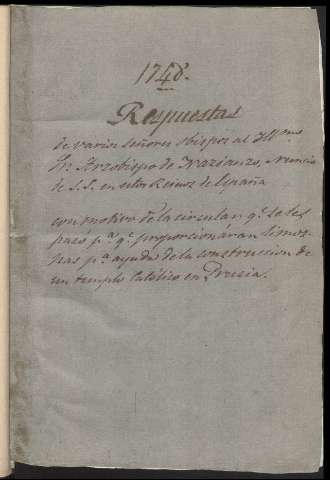 1748.
Respuestas
de varios señores obispos al Ill.mo
Sr. Arzobispo de Nazianzo, Nuncio
de S.S. en estos Reinos de España
con motivo de la circular q.e se les
pasó p.a q.e proporcionáran limos-
nas p.a ayuda de la construccion de
un templo Católico en Prusia.